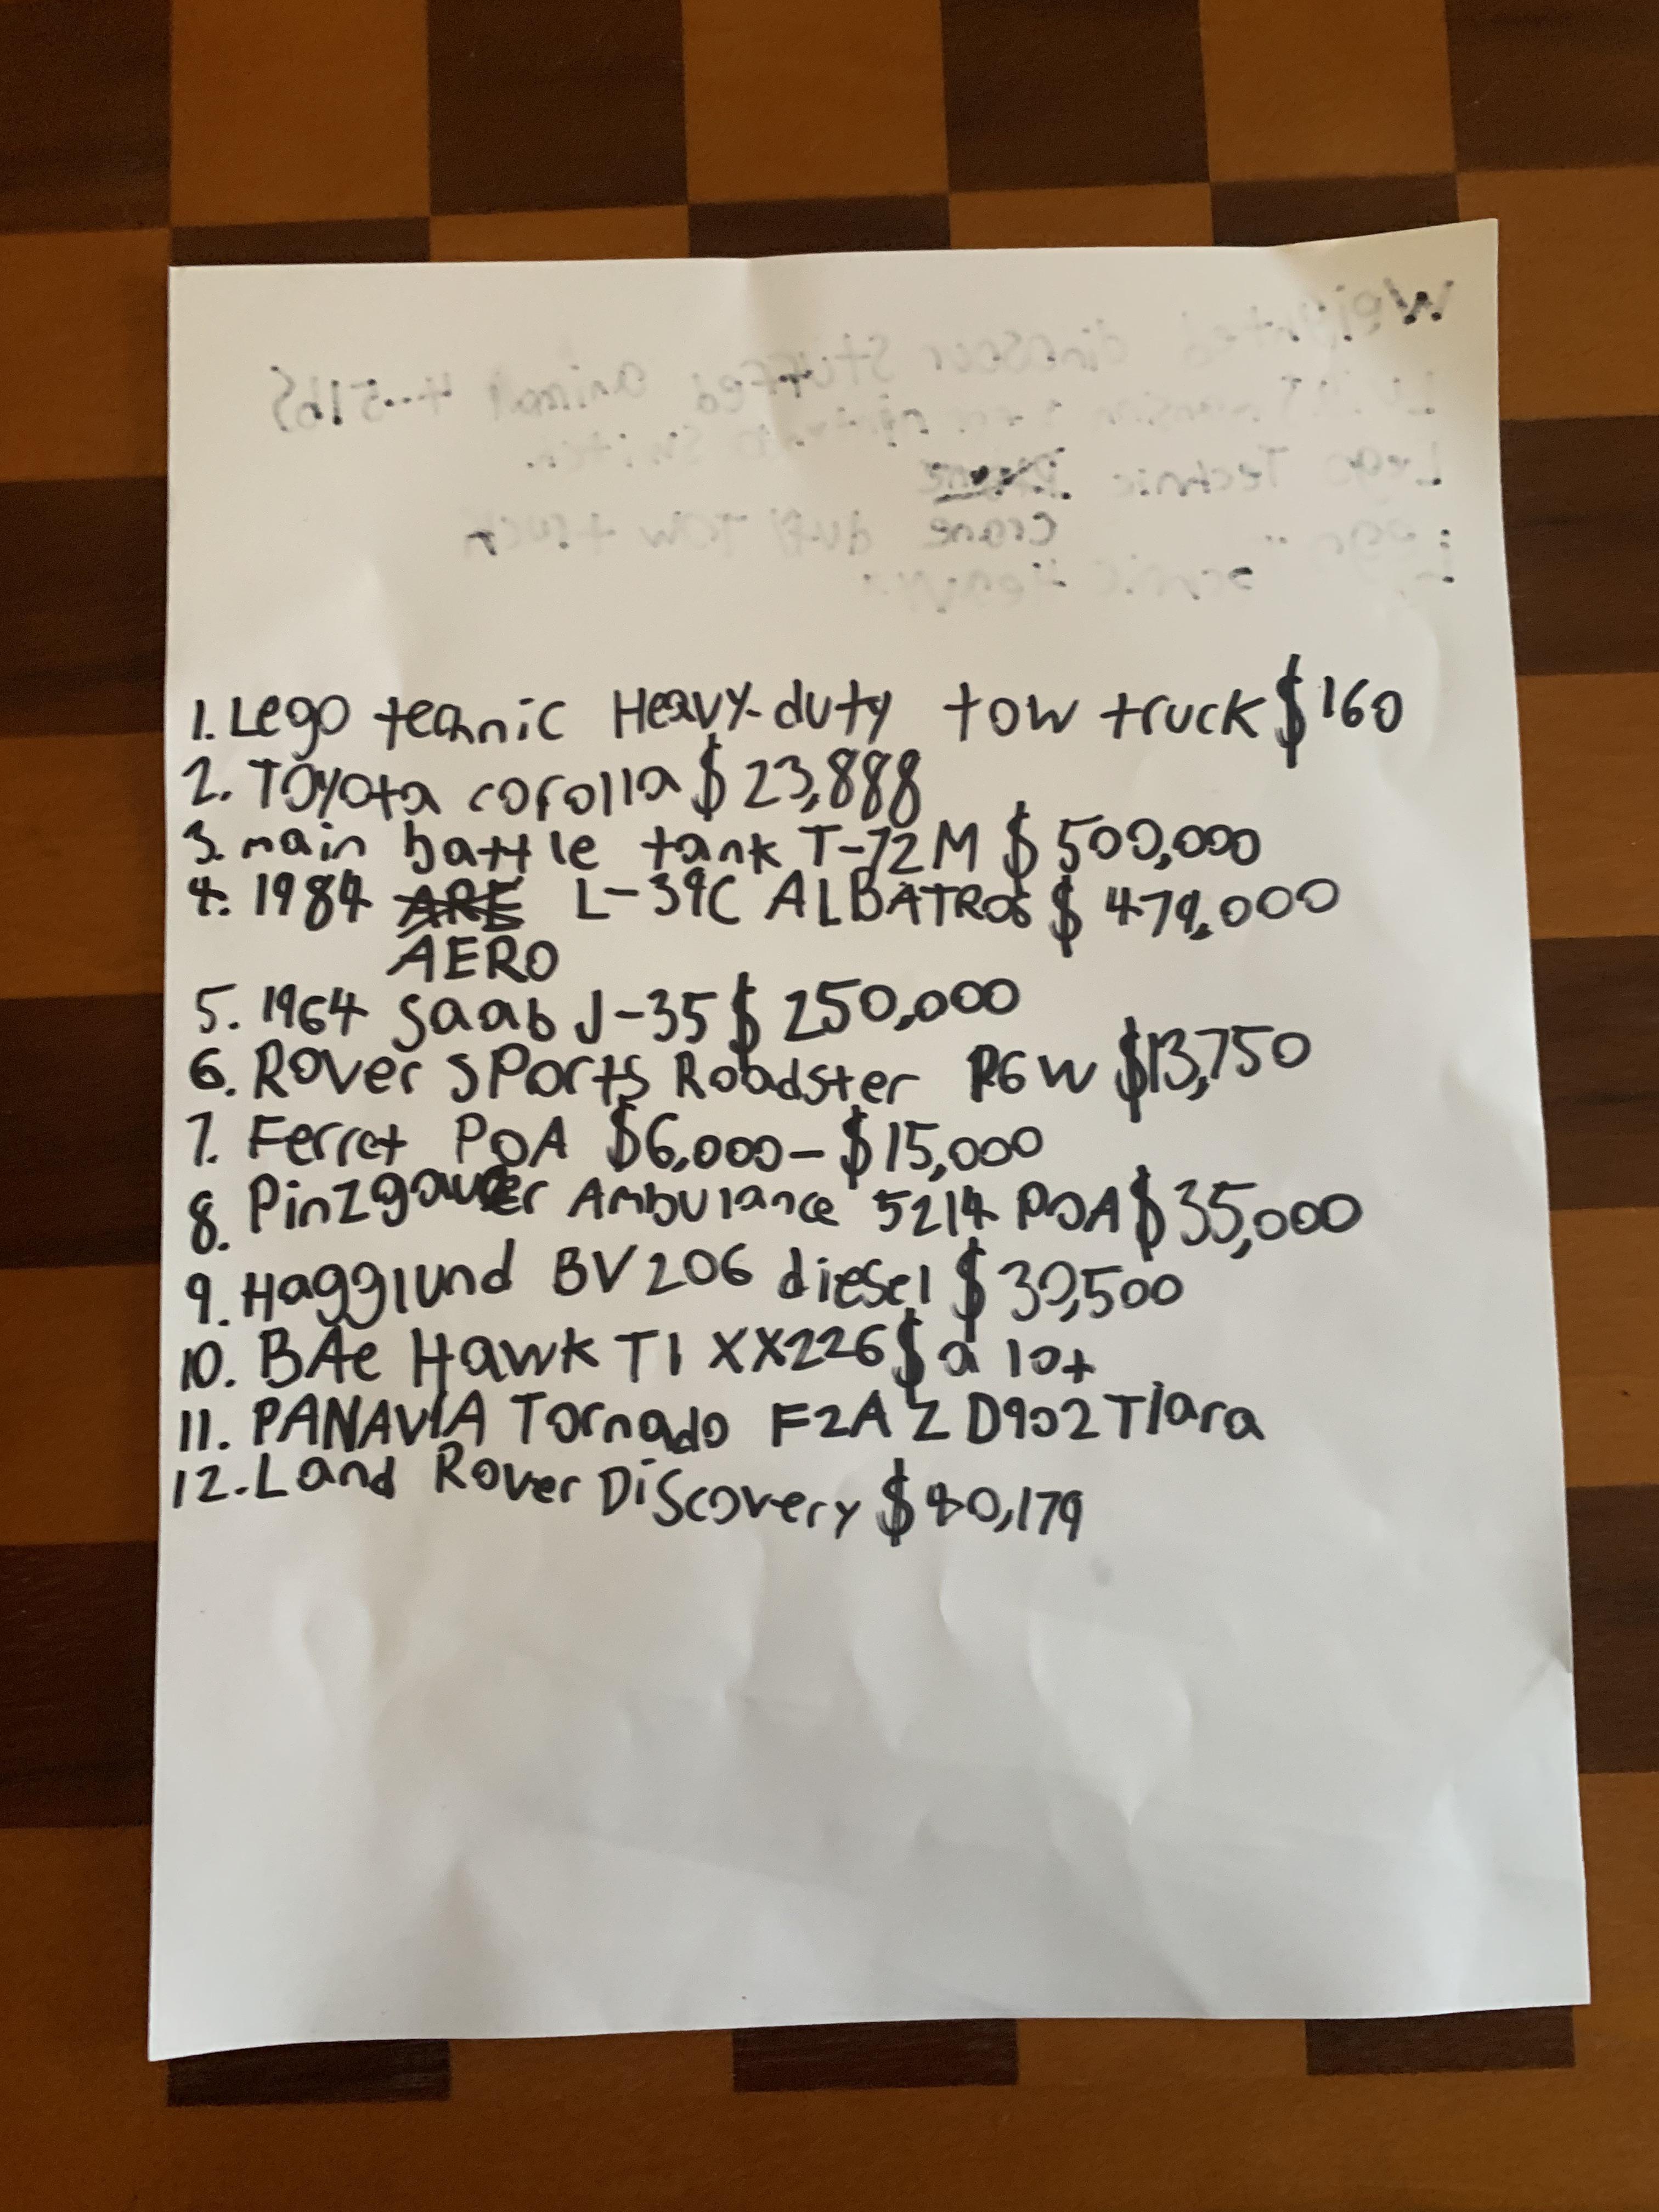 1. Lego technic Heavy-duty tow truck $160
2. Toyota corolla $23,888
3. main battle tank T-72M $500,000
4. 1984 L-39C ALBATROS $479,000
AERO
5. 1964 Saab J-35 $250,000
6. Rover sports Roadster P6W $13,750
7. Ferret POA $6,000-$15,000
8. Pinzgauer Ambulance 5214 POA $35,000
9. Hagglund BV206 diesel $39,500
10. BAe Hawk T1 XX226 $ a 10+
11. PANAVIA Tornado F2A ZD902 Tiara
12. Land Rover Discovery $80,179